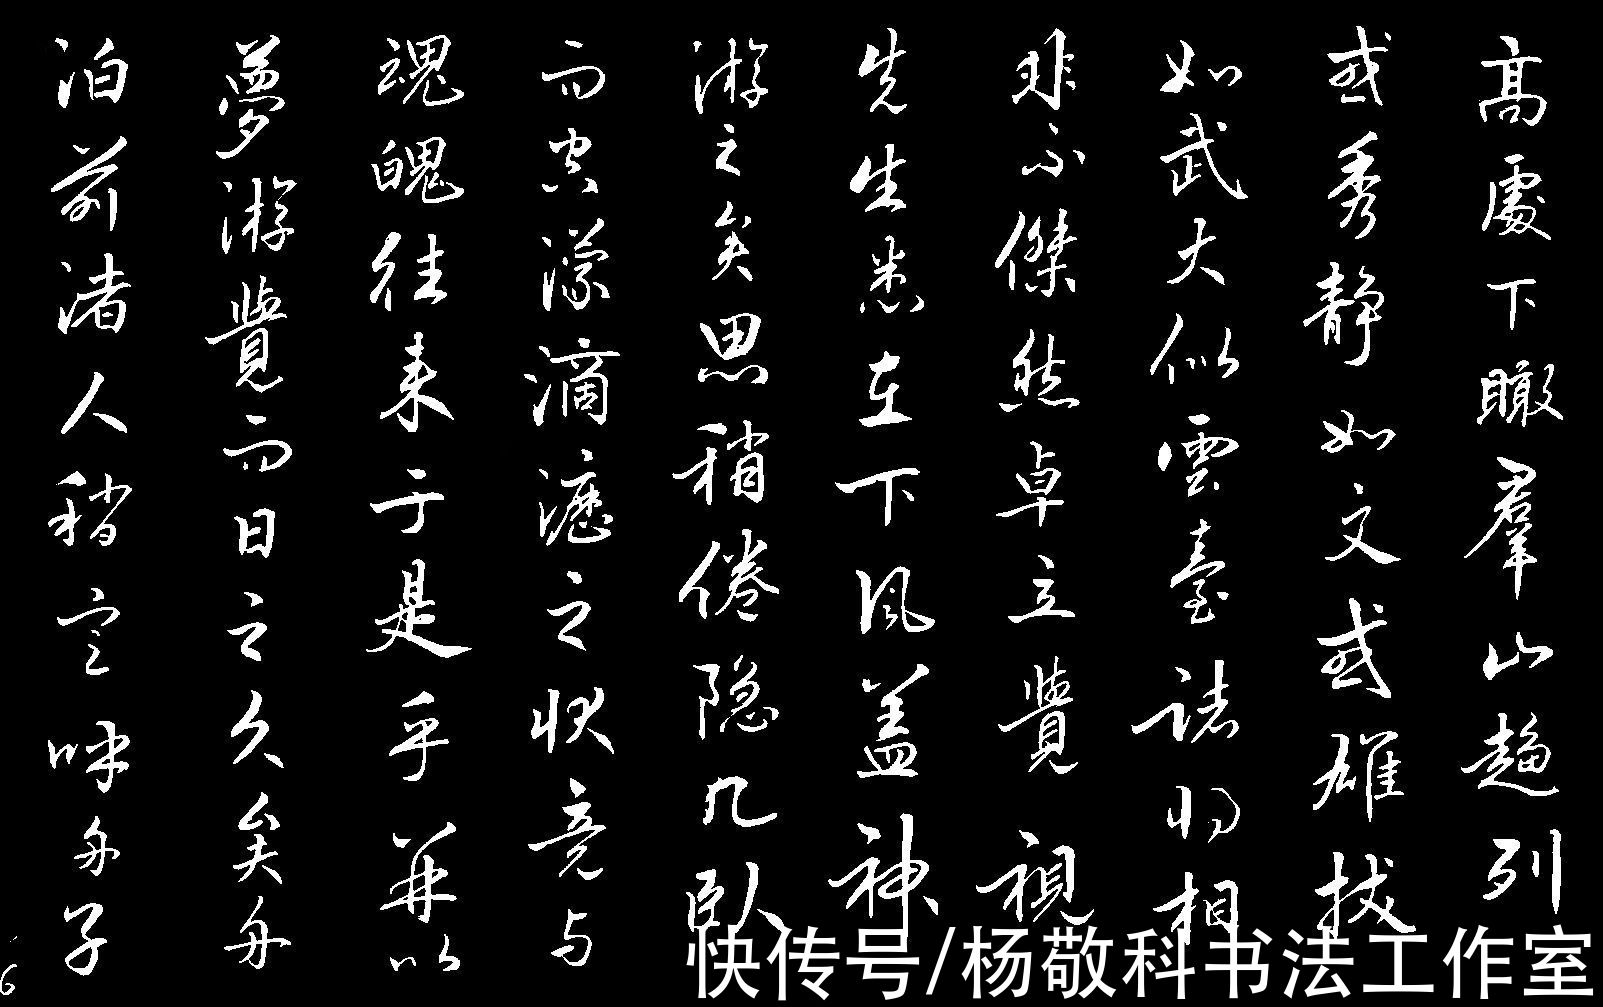 高處下瞰羣山趨列
或秀靜如文或雄拔
如武大似雲臺諸将相
非不傑然卓立覺視
先生悉在下风蓋神
游之矣思稍倦隐几卧
而空濛滴瀝之状竟与
魂魄往来于是乎並以
夢游覺而日之久矣舟
泊前渚人稍定呼舟子
快传号/杨敬科书法工作室
6